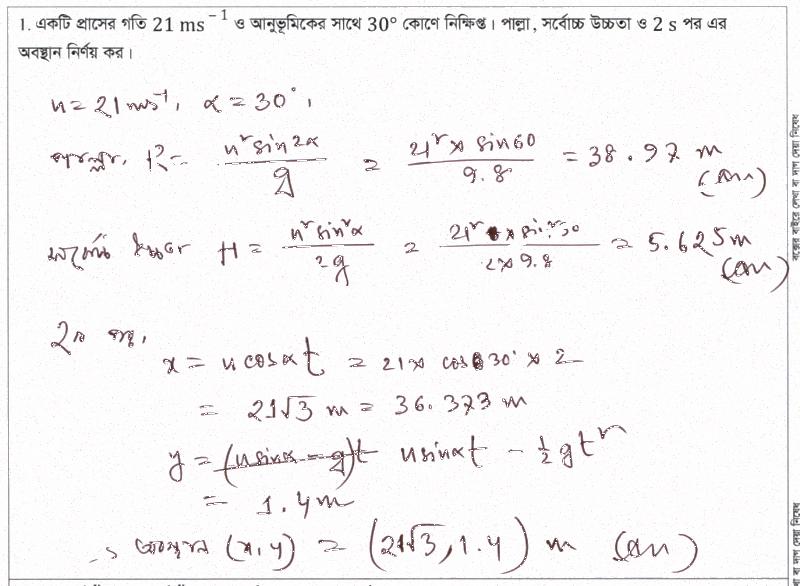 1. একটি প্রাসের গতি 21 ms⁻¹ ও আনুভূমিকের সাথে 30° কোণে নিক্ষিপ্ত। পাল্লা, সর্বোচ্চ উচ্চতা ও 2 s পর এর
অবস্থান নির্ণয় কর।
u = 21 ms⁻¹, α = 30°,
পাল্লা, R = u² sin 2α / g = 21² × sin 60 / 9.8 = 38.97 m
(Ans)
সর্বোচ্চ উচ্চতা H = u² sin² α / 2g = 21² × sin² 30 / 2 × 9.8 = 5.625 m
(Ans)
2s পর,
x = u cos α t = 21 × cos 30° × 2
= 21√3 m = 36.373 m
y = (u sin α - g)t u sin α t - ½ g t²
= 1.4 m
∴ অবস্থান (x, y) = (21√3, 1.4) m (Ans)
বক্সের বাইরে লেখা বা দাগ দেয়া নিষেধ
বা দাগ দেয়া নিষেধ